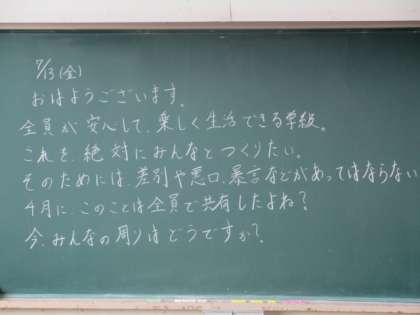 7/13(金)
おはようございます。
全員が安心して、楽しく生活できる学級。
これを、絶対にみんなとつくりたい。
そのためには、差別や悪口、暴言などがあってはならない
4月に、このことは全員で共有したよね？
今、みんなの周りはどうですか？